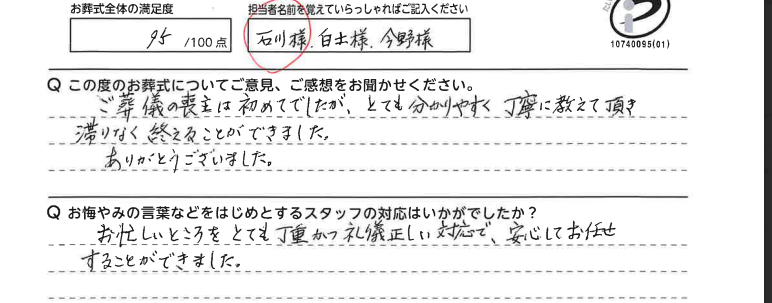 お葬式全体の満足度
担当者名前を覚えていらっしゃればご記入ください
95 /100点
石川様、白土様、今野様
10740095(01)
Q この度のお葬式についてご意見、ご感想をお聞かせください。
ご葬儀の喪主は初めてでしたが、とても分かりやすく丁寧に教えて頂き
滞りなく終えることができました。
ありがとうございました。
Q お悔やみの言葉などをはじめとするスタッフの対応はいかがでしたか?
お忙しいところをとても丁重かつ礼儀正しい対応で、安心してお任せ
することができました。